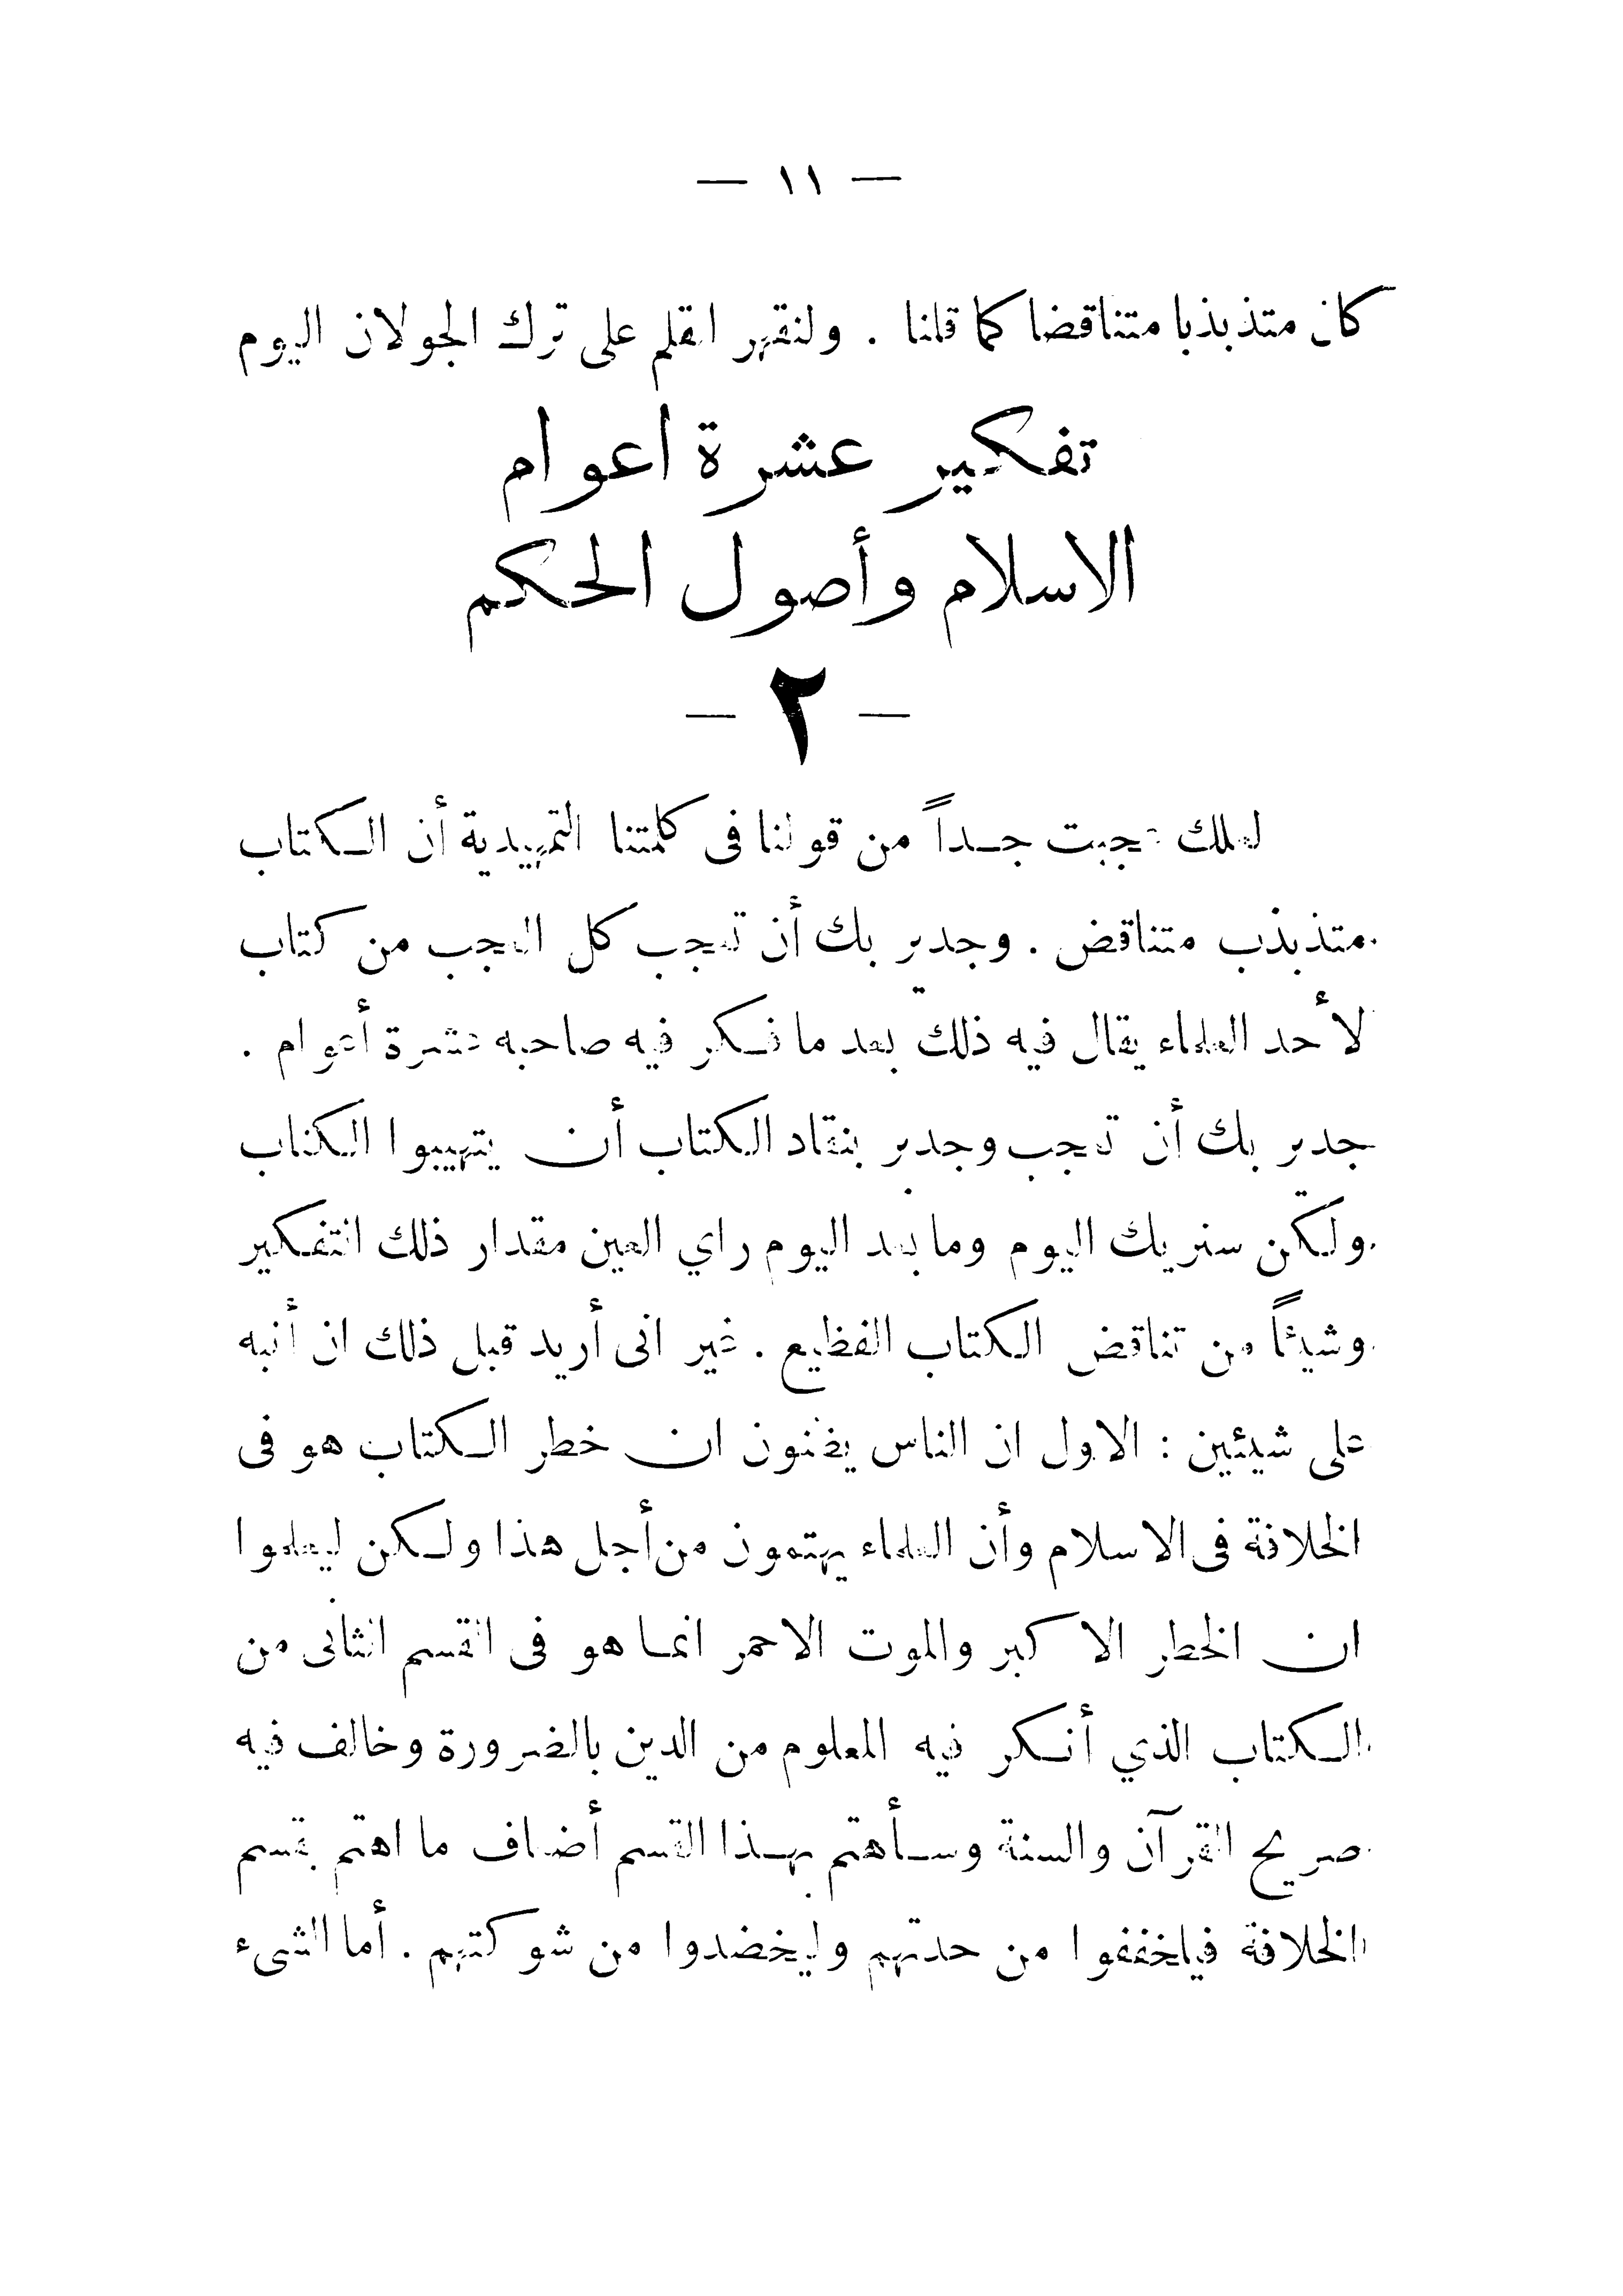 — ١١ —
كان متذبذبا متناقضا كما قلنا . ولنقهر القلم على ترك الجولان اليوم
تفكير عشرة اعوام
الاسلام وأصول الحكم
— ٢ —
لعلك تعجبت جداً من قولنا فى كلمتنا التمهيدية أن الكتاب
متذبذب متناقض . وجدير بك أن تعجب كل العجب من كتاب
لأحد العلماء يقال فيه ذلك بعد ما فكر فيه صاحبه عشرة أعوام .
جدير بك أن تعجب وجدير بنقاد الكتاب أن يتهيبوا الكتاب
ولكن سنريك اليوم وما بعد اليوم راي العين مقدار ذلك التفكير
وشيئاً من تناقض الكتاب الفظيع . غير انى أريد قبل ذلك ان أنبه
على شيئين : الاول ان الناس يظنون ان خطر الكتاب هو فى
الخلافة فى الاسلام وأن العلماء يهتمون من أجل هذا ولكن ليعلموا
ان الخطر الاكبر والموت الاحمر انما هو فى القسم الثانى من
الكتاب الذي أنكر فيه المعلوم من الدين بالضرورة وخالف فيه
صريح القرآن والسنة وسأهتم بهذا القسم أضعاف ما اهتم بقسم
الخلافة فليخففوا من حدتهم وليخضدوا من شوكتهم . أما الشىء